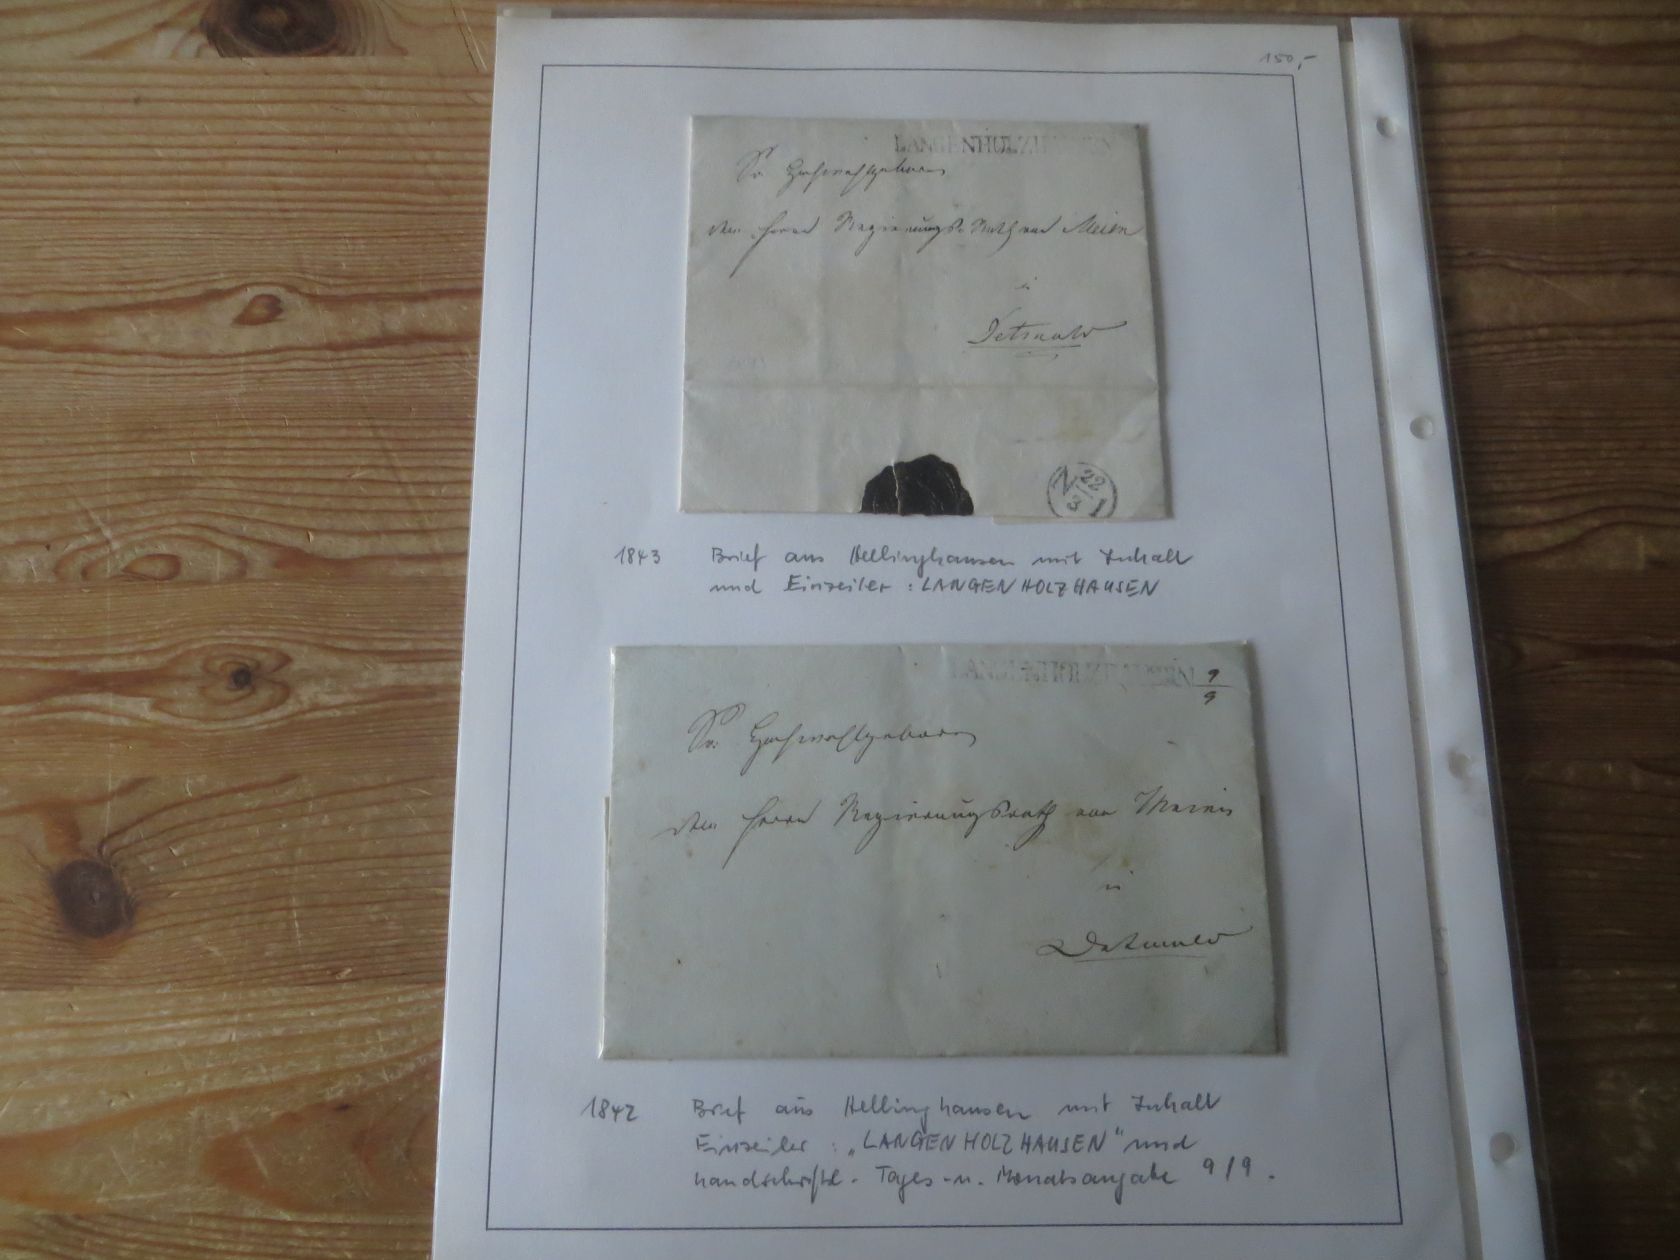 150,-
LANGENHOLZHAUSEN
Sr. Hochwohlgeboren
dem Herrn Regierungs-Rath von Meien
in
Detmold
N 22
3 1
1843 Brief aus Hellinghausen mit Inhalt
und Einzeiler : LANGENHOLZHAUSEN
LANGENHOLZHAUSEN 9/9
Sr. Hochwohlgeboren
dem Herrn Regierungsrath von Meien
in
Detmold
1842 Brief aus Hellinghausen mit Inhalt
Einzeiler : „LANGENHOLZHAUSEN" und
handschriftl. Tages- u. Monatsangabe 9/9.